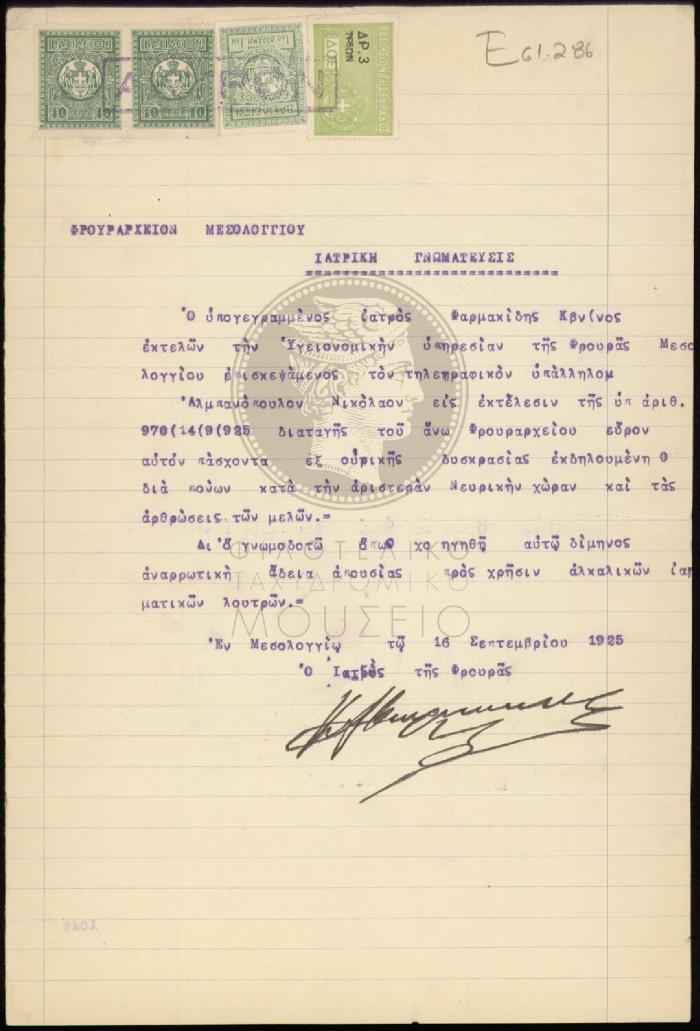 Ε 61.286
ΒΑΣΙΛΕΙΟΝ
10 10
ΒΑΣΙΛΕΙΟΝ
10 10
ΔΡ. 3
ΑΚΥΡΟΝ
ΦΡΟΥΡΑΡΧΕΙΟΝ ΜΕΣΟΛΟΓΓΙΟΥ
ΙΑΤΡΙΚΗ ΓΝΩΜΑΤΕΥΣΙΣ
Ὁ ὑπογεγραμμένος ἰατρὸς Φαρμακίδης Κβν(νος
ἐκτελῶν τὴν Ὑγειονομικὴν ὑπηρεσίαν τῆς Φρουρᾶς Μεσο
λογγίου ἐπισκεψάμενος τὸν τηλεγραφικὸν ὑπάλληλομ
Ἀλμπανόπουλον Νικόλαον εἰς ἐκτέλεσιν τῆς ὑπ ἀριθ.
970(14(9(925 διαταγῆς τοῦ ἄνω Φρουραρχείου εὗρον
αὐτὸν πάσχοντα ἐξ οὐρικῆς δυσκρασίας ἐκδηλουμένη θ
διὰ πόνων κατὰ τὴν ἀριστερὰν Νευρικὴν χώραν καὶ τὰς
ἀρθρώσεις τῶν μελῶν.=
Δι ὅ γνωμοδοτῶ ὅπω θ χο ηγηθῇ αὐτῷ δίμηνος
ἀναρρωτικὴ ἄδεια ἀπουσίας πρὸς χρῆσιν ἀλκαλικῶν ἰαμ
ματικῶν λουτρῶν.=
Ἐν Μεσολογγίῳ τῇ 16 Σεπτεμβρίου 1925
Ὁ Ἰατρὸς τῆς Φρουρᾶς
ΦΙΛΟΤΕΛΙΚΟ
ΤΑΧΥΔΡΟΜΙΚΟ
ΜΟΥΣΕΙΟ